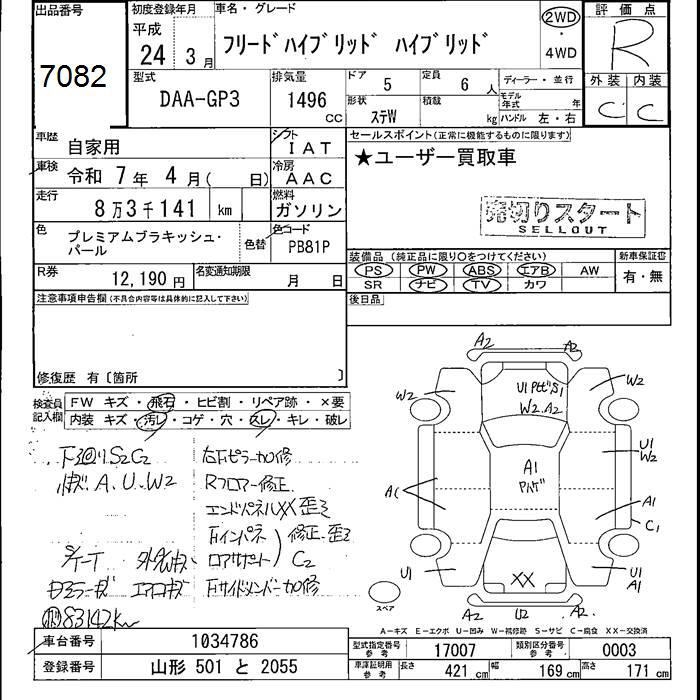 出品番号 初度登録年月 車名・グレード 評価点
7082 平成 24 3月 フリードハイブリッド ハイブリッド 2WD・4WD R
型式 排気量 ドア 5 定員 6人 ディーラー・並行 外装 内装
DAA-GP3 1496 CC 形状 ステW 積載 kg モデル年式 年 ハンドル 左・右 C C
車歴 自家用 シフト IAT セールスポイント(正常に機能するものに限ります)
車検 令和 7年 4月( 日) 冷房 AAC ★ユーザー買取車
走行 8万3千141 km 燃料 ガソリン 売切りスタート
SELLOUT
色 プレミアムブラキッシュ・パール 色替 色コード PB81P
装備品(純正品に限り○をつけてください) 新車保証書
R券 12,190円 名変通知期限 月 日 PS PW ABS エアB AW 有・無
SR ナビ TV カワ
注意事項申告欄(不具合内容等は具体的に記入して下さい) 後日品
修復歴 有〔箇所 〕
検査員記入欄 FW キズ・飛石・ヒビ割・リペア跡・×要
内装 キズ・汚レ・コゲ・穴・スレ・キレ・破レ
下廻りS2C2 右下ピラー加修
A、U、W2 Rフロアー修正
エンドパネルXX歪ミ
下インパネ 修正・歪ミ
ロアサポート C2
下サイドメンバー加修
83142km
A2 A2
W2 U1 S1 W2
W2.A2
U1
W2
A1
A A1
C1
U1 U1
A1
XX
スペア A2 U2 A2
A-キズ E-エクボ U-凹み W-補修跡 S-サビ C-腐食 XX-交換済
車台番号 1034786 型式指定番号 参考 17007 類別区分番号 参考 0003
登録番号 山形 501 と 2055 車庫証明用 参考 長さ 421cm 幅 169cm 高さ 171cm